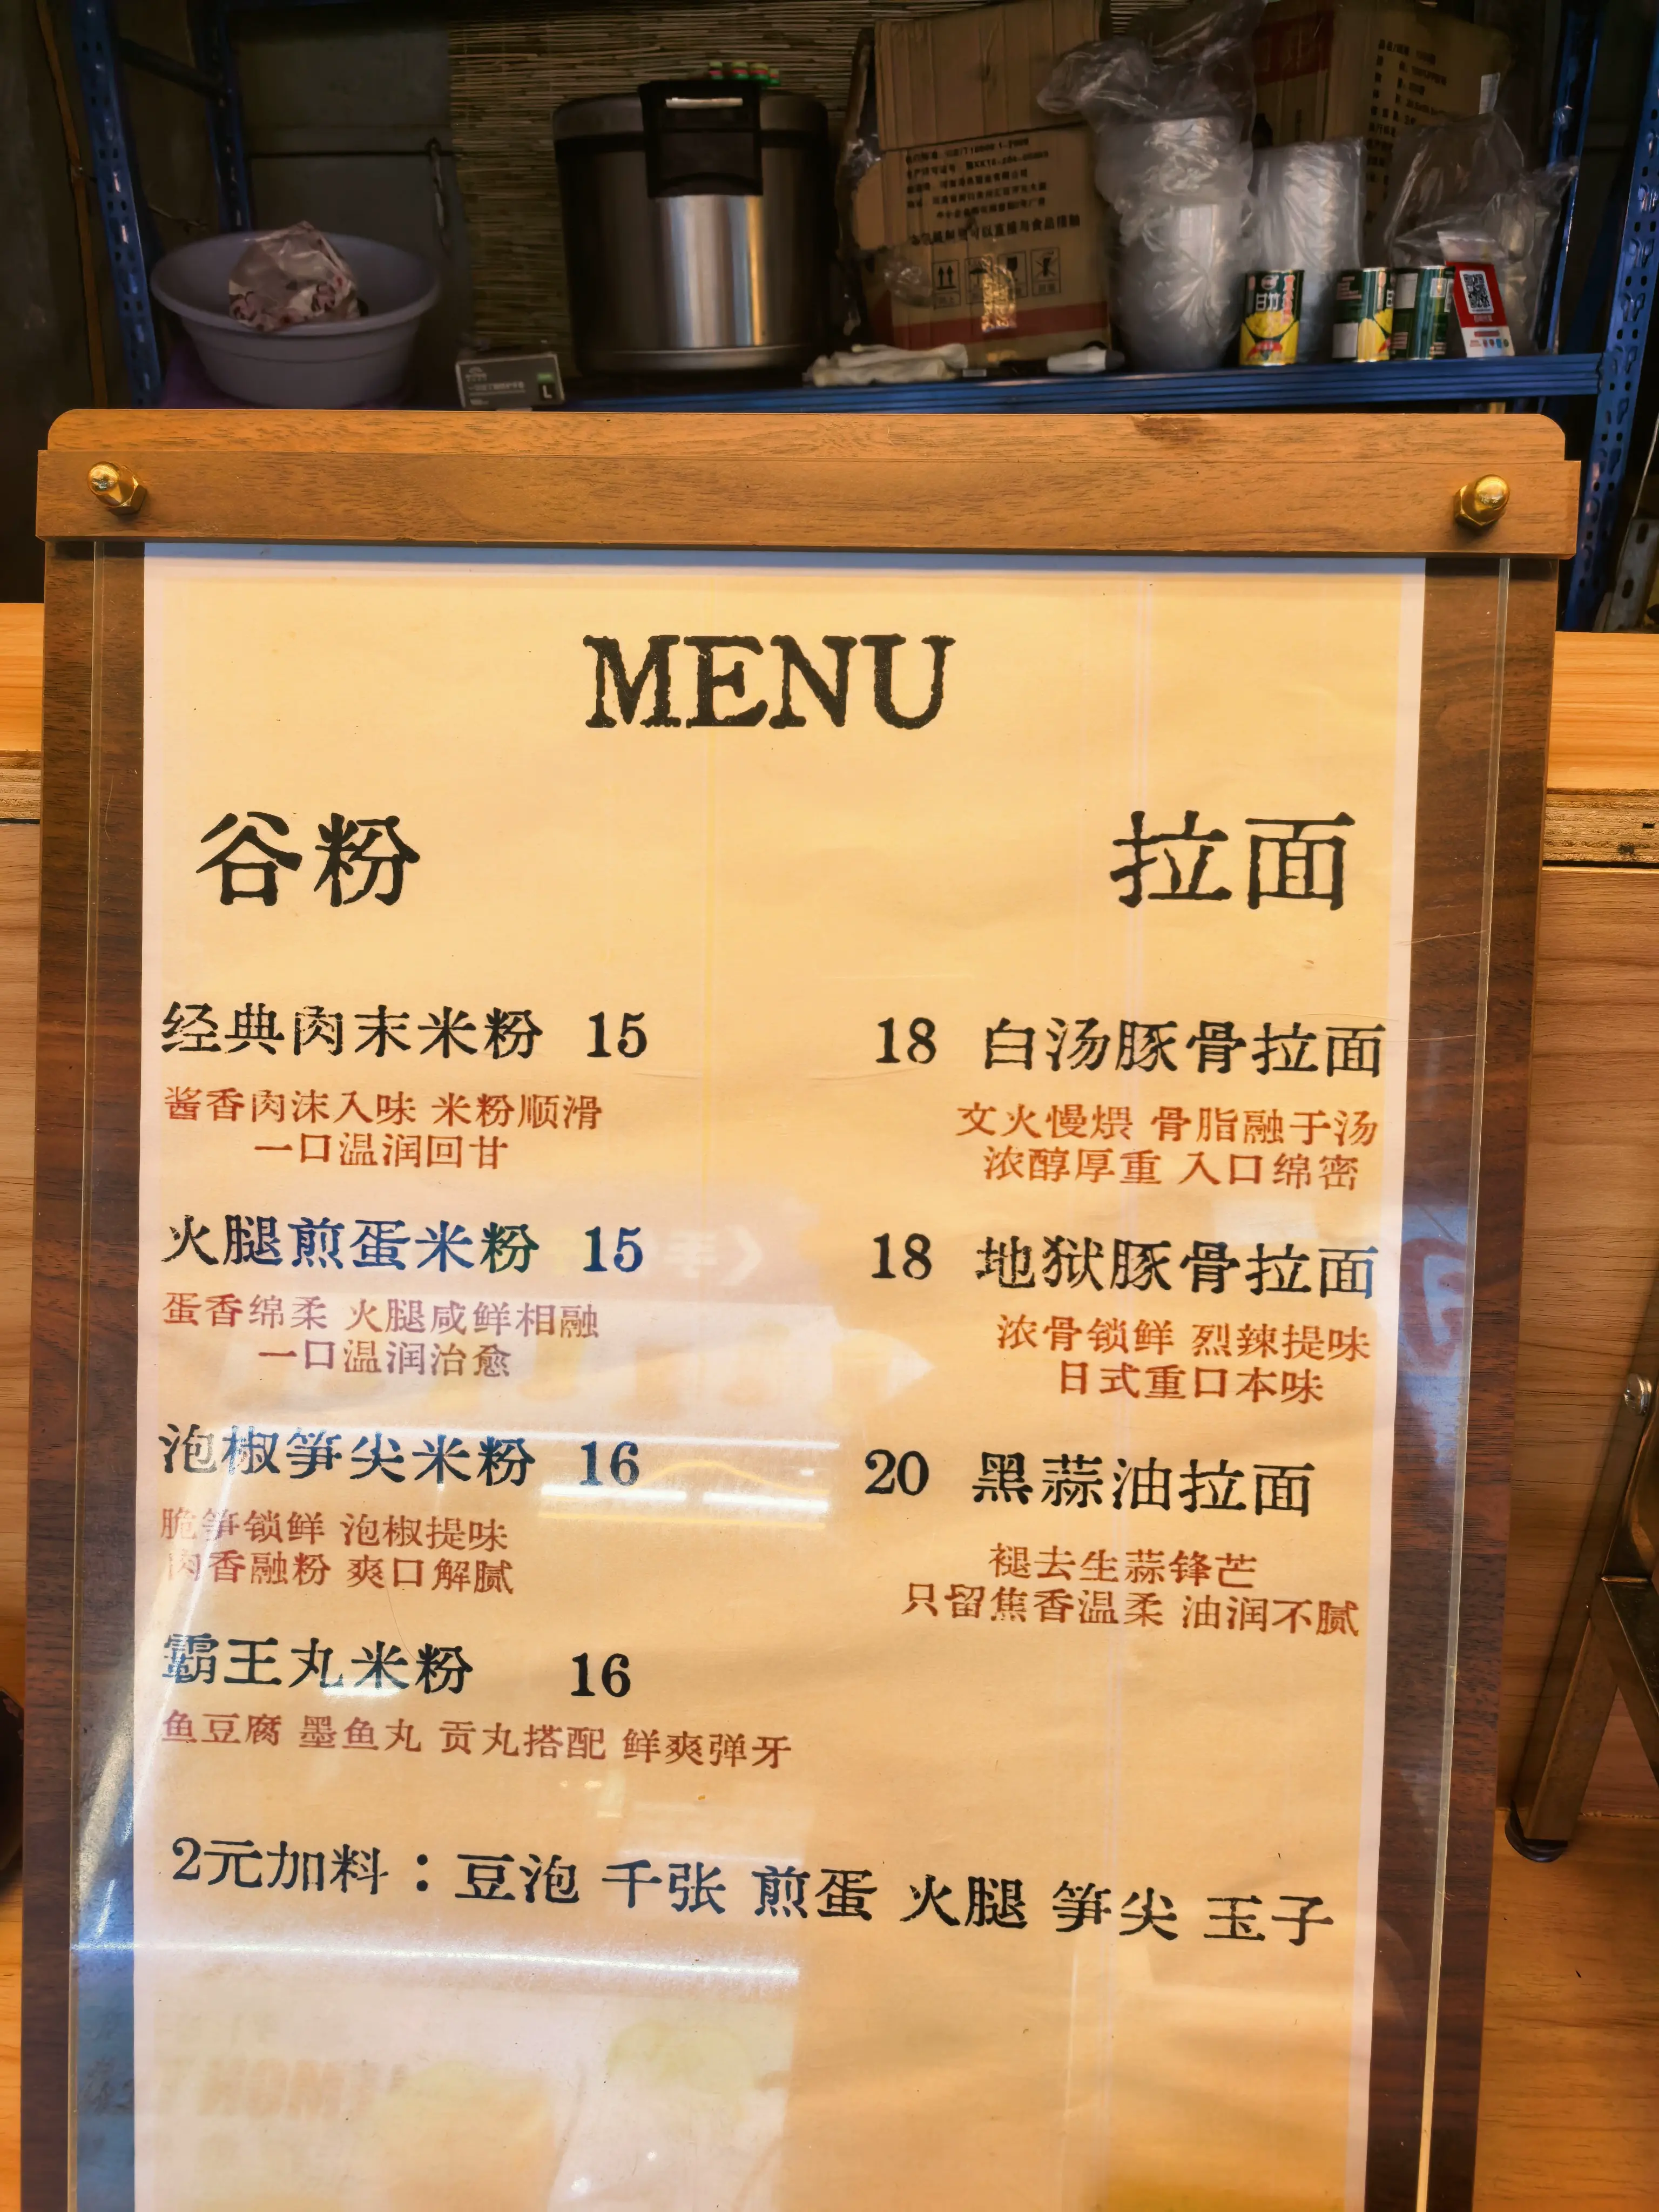 L
日式
MENU
谷粉
经典肉末米粉 15
酱香肉沫入味 米粉顺滑
一口温润回甘
火腿煎蛋米粉 15
蛋香绵柔 火腿咸鲜相融
一口温润治愈
泡椒笋尖米粉 16
脆笋锁鲜 泡椒提味
肉香融粉 爽口解腻
霸王丸米粉 16
鱼豆腐 墨鱼丸 贡丸搭配 鲜爽弹牙
拉面
18 白汤豚骨拉面
文火慢煨 骨脂融于汤
浓醇厚重 入口绵密
18 地狱豚骨拉面
浓骨锁鲜 烈辣提味
日式重口本味
20 黑蒜油拉面
褪去生蒜锋芒
只留焦香温柔 油润不腻
2元加料：豆泡 千张 煎蛋 火腿 笋尖 玉子